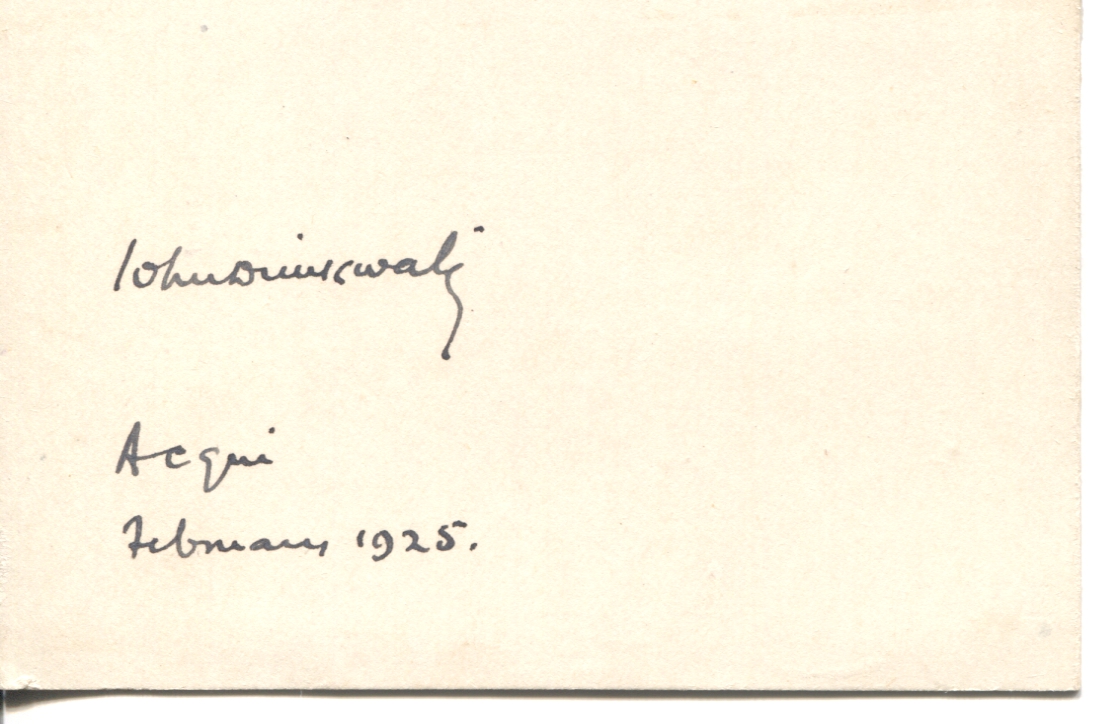 John Drinkwater
Acqui
February 1925.